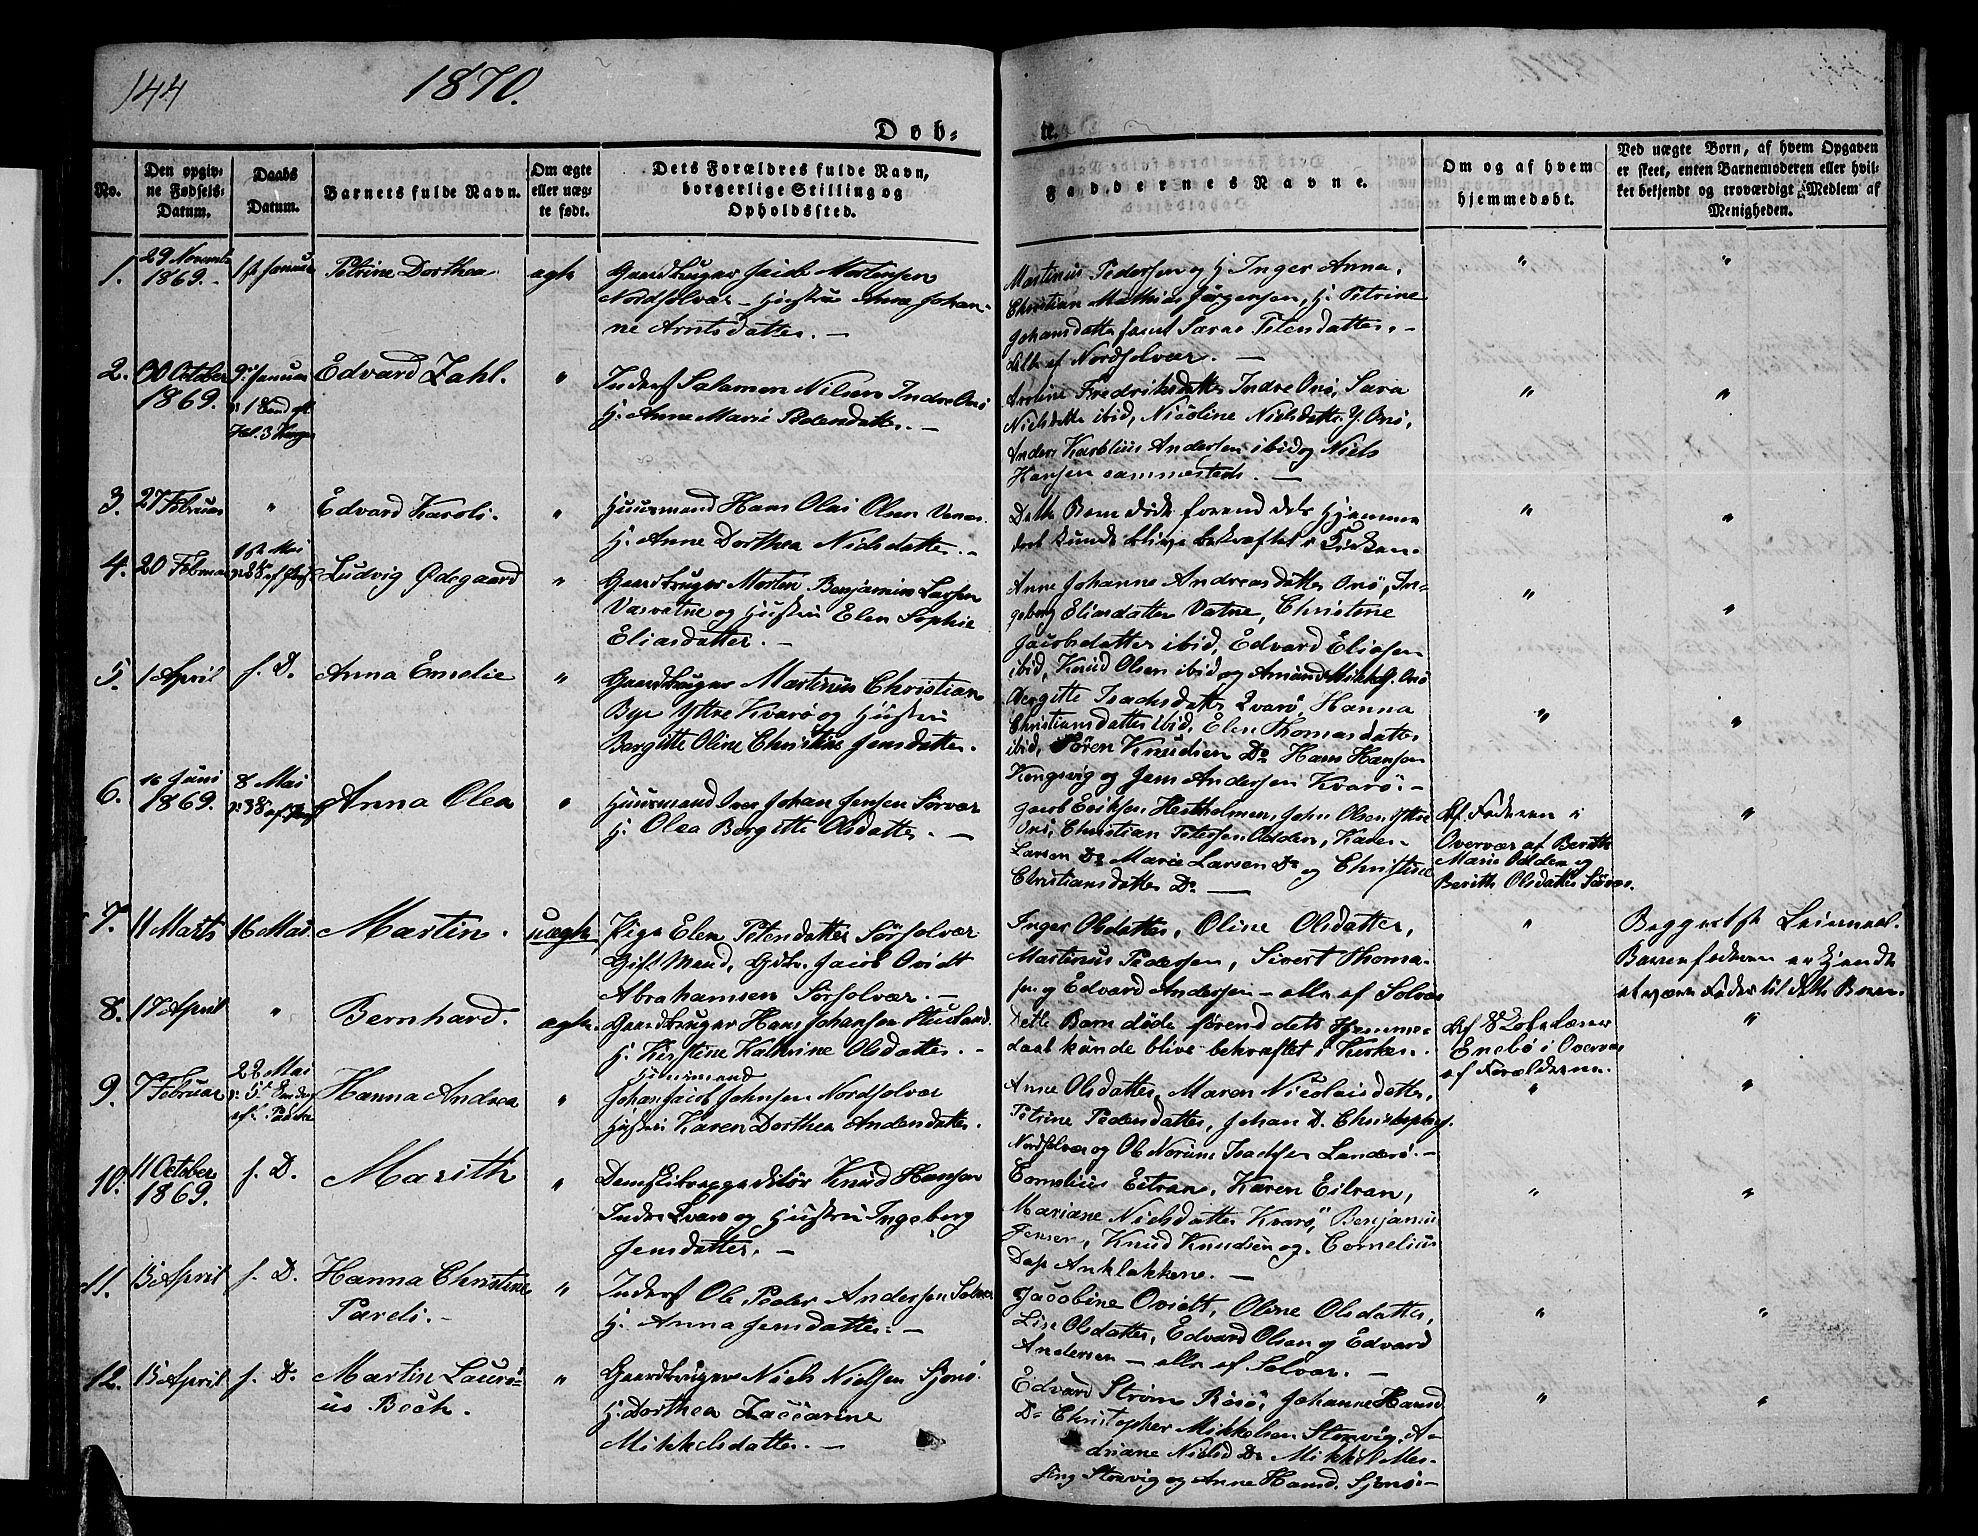 144
1870.
Døb-
te.
No.
Den opgiv-
ne Fødsels-
Datum.
Daabs
Datum.
Barnets fulde Navn.
Om ægte
eller uæg-
te født.
Dets Forældres fulde Navn,
borgerlige Stilling og
Opholdssted.
Faddernes Navne.
Om og af hvem
hjemmedøbt.
Ved uægte Børn, af hvem Opgaven
er skeet, enten Barnemoderen eller hvil-
ket bekjendt og troværdigt Medlem af
Menigheden.
1.
29 Novemb
1869.
1st Januar
Petrine Dorthea
ægte
Gaardbruger Jacob Mortensen
Nordsolvær - Hustru Anna Johan-
ne Arntsdatter. -
Martinus Pedersen og H. Inger Anna,
Christian Mathias Jørgensen, H. Petrine
Johansdatter samt Sarne Petersdatter, -
alle af Nordsolvær. -
"
"
2.
30 October
1869.
9 Januar
Edvard Zahl.
"
Inderst Salamon Nilsen Indre Onø
H. Anne Marie Pedersdatter. -
Arnine Fredriksdatter Indre Onø, Sara
Nielsdatter ibid, Nicoline Nielsdatter Y. Onø,
Anders Karblius Andersen ibid og Niels
Hansen sammesteds. -
"
"
3.
27 Februar
"
Edvard Karoli.
"
Huusmand Hans Olai Olsen
H. Anne Dorthea Nielsdatter. -
Dette Barn døde forend dets Hjemme
daab kunde blive bekræftet i Kirken -
"
"
4.
20 Februar
1ste Mai
Ludvig Ødegaard
"
Gaardbruger Morten Benjamin Larsen
Vasvatne og Hustru Elen Sophie
Eliasdatter. -
Anne Johanne Andreasdatter Onø, In-
geborg Eliasdatter Vatne, Christine
Jacobsdatter ibid, Edvard Eliasen
ibid, Knud Olsen ibid og Amund Mikkels. Onø
"
"
5.
1 April
s. D.
Anna Emelie
"
Gaardbruger Martinus Christian
Bye Yttre Kvarø og Hustru
Bergitte Oline Christine Jensdatter.
Bergitte Isachsdatter Kvarø, Hanna
Christiansdatter ibid, Elen Thomasdatter
ibid, Søren Knudsen Do Hans Hansen
Kongsvig og Jens Andersen Kvarø. -
"
"
6.
16 Juni
1869.
8 Mai
Anna Olea
"
Huusmand Iver Johan Jensen Sørvær
H. Olea Bergitte Olsdatter. -
Jacob Eriksen Hestholmen, John Olsen Yttre
Onø, Christian Petersen Odden, Karen
Larsen Do Marie Larsen Do og Christine
Christiansdatter Do -
Af Faderen i
Overvær af Berith
Marie Odden og
Berith Olsdatter Sørvær.
"
7.
11 Marts
16 Mai
Martin.
uægte
Pige Elen Petersdatter Sørsolvær
Gift Mand, Gdbr. Jacob Ovidt
Abrahamsen Sørsolvær. -
Inger Olsdatter, Oline Olsdatter,
Martinus Pedersen, Sivert Thoma-
sen og Edvard Andersen - alle af Solvær
"
Begges 1ste Leiermaal.
Barnefaderen erkjendte
at være Fader til dette Barn.
8.
17 April
"
Bernhard.
ægte.
Gaardbruger Hans Johansen Stuvland
H. Kirstine Kathrine Olsdatter. -
Dette Barn døde førend dets Hjemme-
daab kunde blive bekræftet i Kirken.
Af Skolelærer
Enebø i Overvær
af Forældrene.
"
9.
7 Februar
22 Mai
Hanna Andrea
"
Huusmand
Johan Jacob Johnsen Nordsolvær
Hustru Karen Dorthea Andersdatter.
Anne Olsdatter, Maren Nicolaisdatter,
Petrine Pedersdatter, Johan D. Christophers.
Nordsolvær og Ole Norum Isachsen Landerø. -
"
"
10.
11 October
1869.
s. D.
Marith
"
Dampskibsexpeditør Knud Hansen
Indre Kvarø og Hustru Ingeborg
Jensdatter. -
Cornelius Eitran, Karen Eitran,
Mariane Nielsdatter Kvarø, Benjamin
Jensen, Knud Knudsen og Cornelius
Dass Anklakkene. -
"
"
11.
15 April
s. D.
Hanna Christine
Pareli. -
"
Inderst Ole Peder Andersen Solvær
H. Anna Jensdatter. -
Jacobine Ovidt, Oline Olsdatter,
Lise Olsdatter, Edvard Olsen og Edvard
Andersen - alle af Solvær. -
"
"
12.
15 April
s. D.
Martin Lauri-
us Bech.
"
Gaardbruger Niels Nielsen Sjonø.
H. Dorthea Zaccarine
Mikkelsdatter. -
Edvard Strøm Rosø, Johanne Hansd
Do Christopher Mikkelsen Storvig, A-
driane Nielsd Do Mikkel Mes-
sing Storvig og Anne Hansd. Sjonø. -
"
"